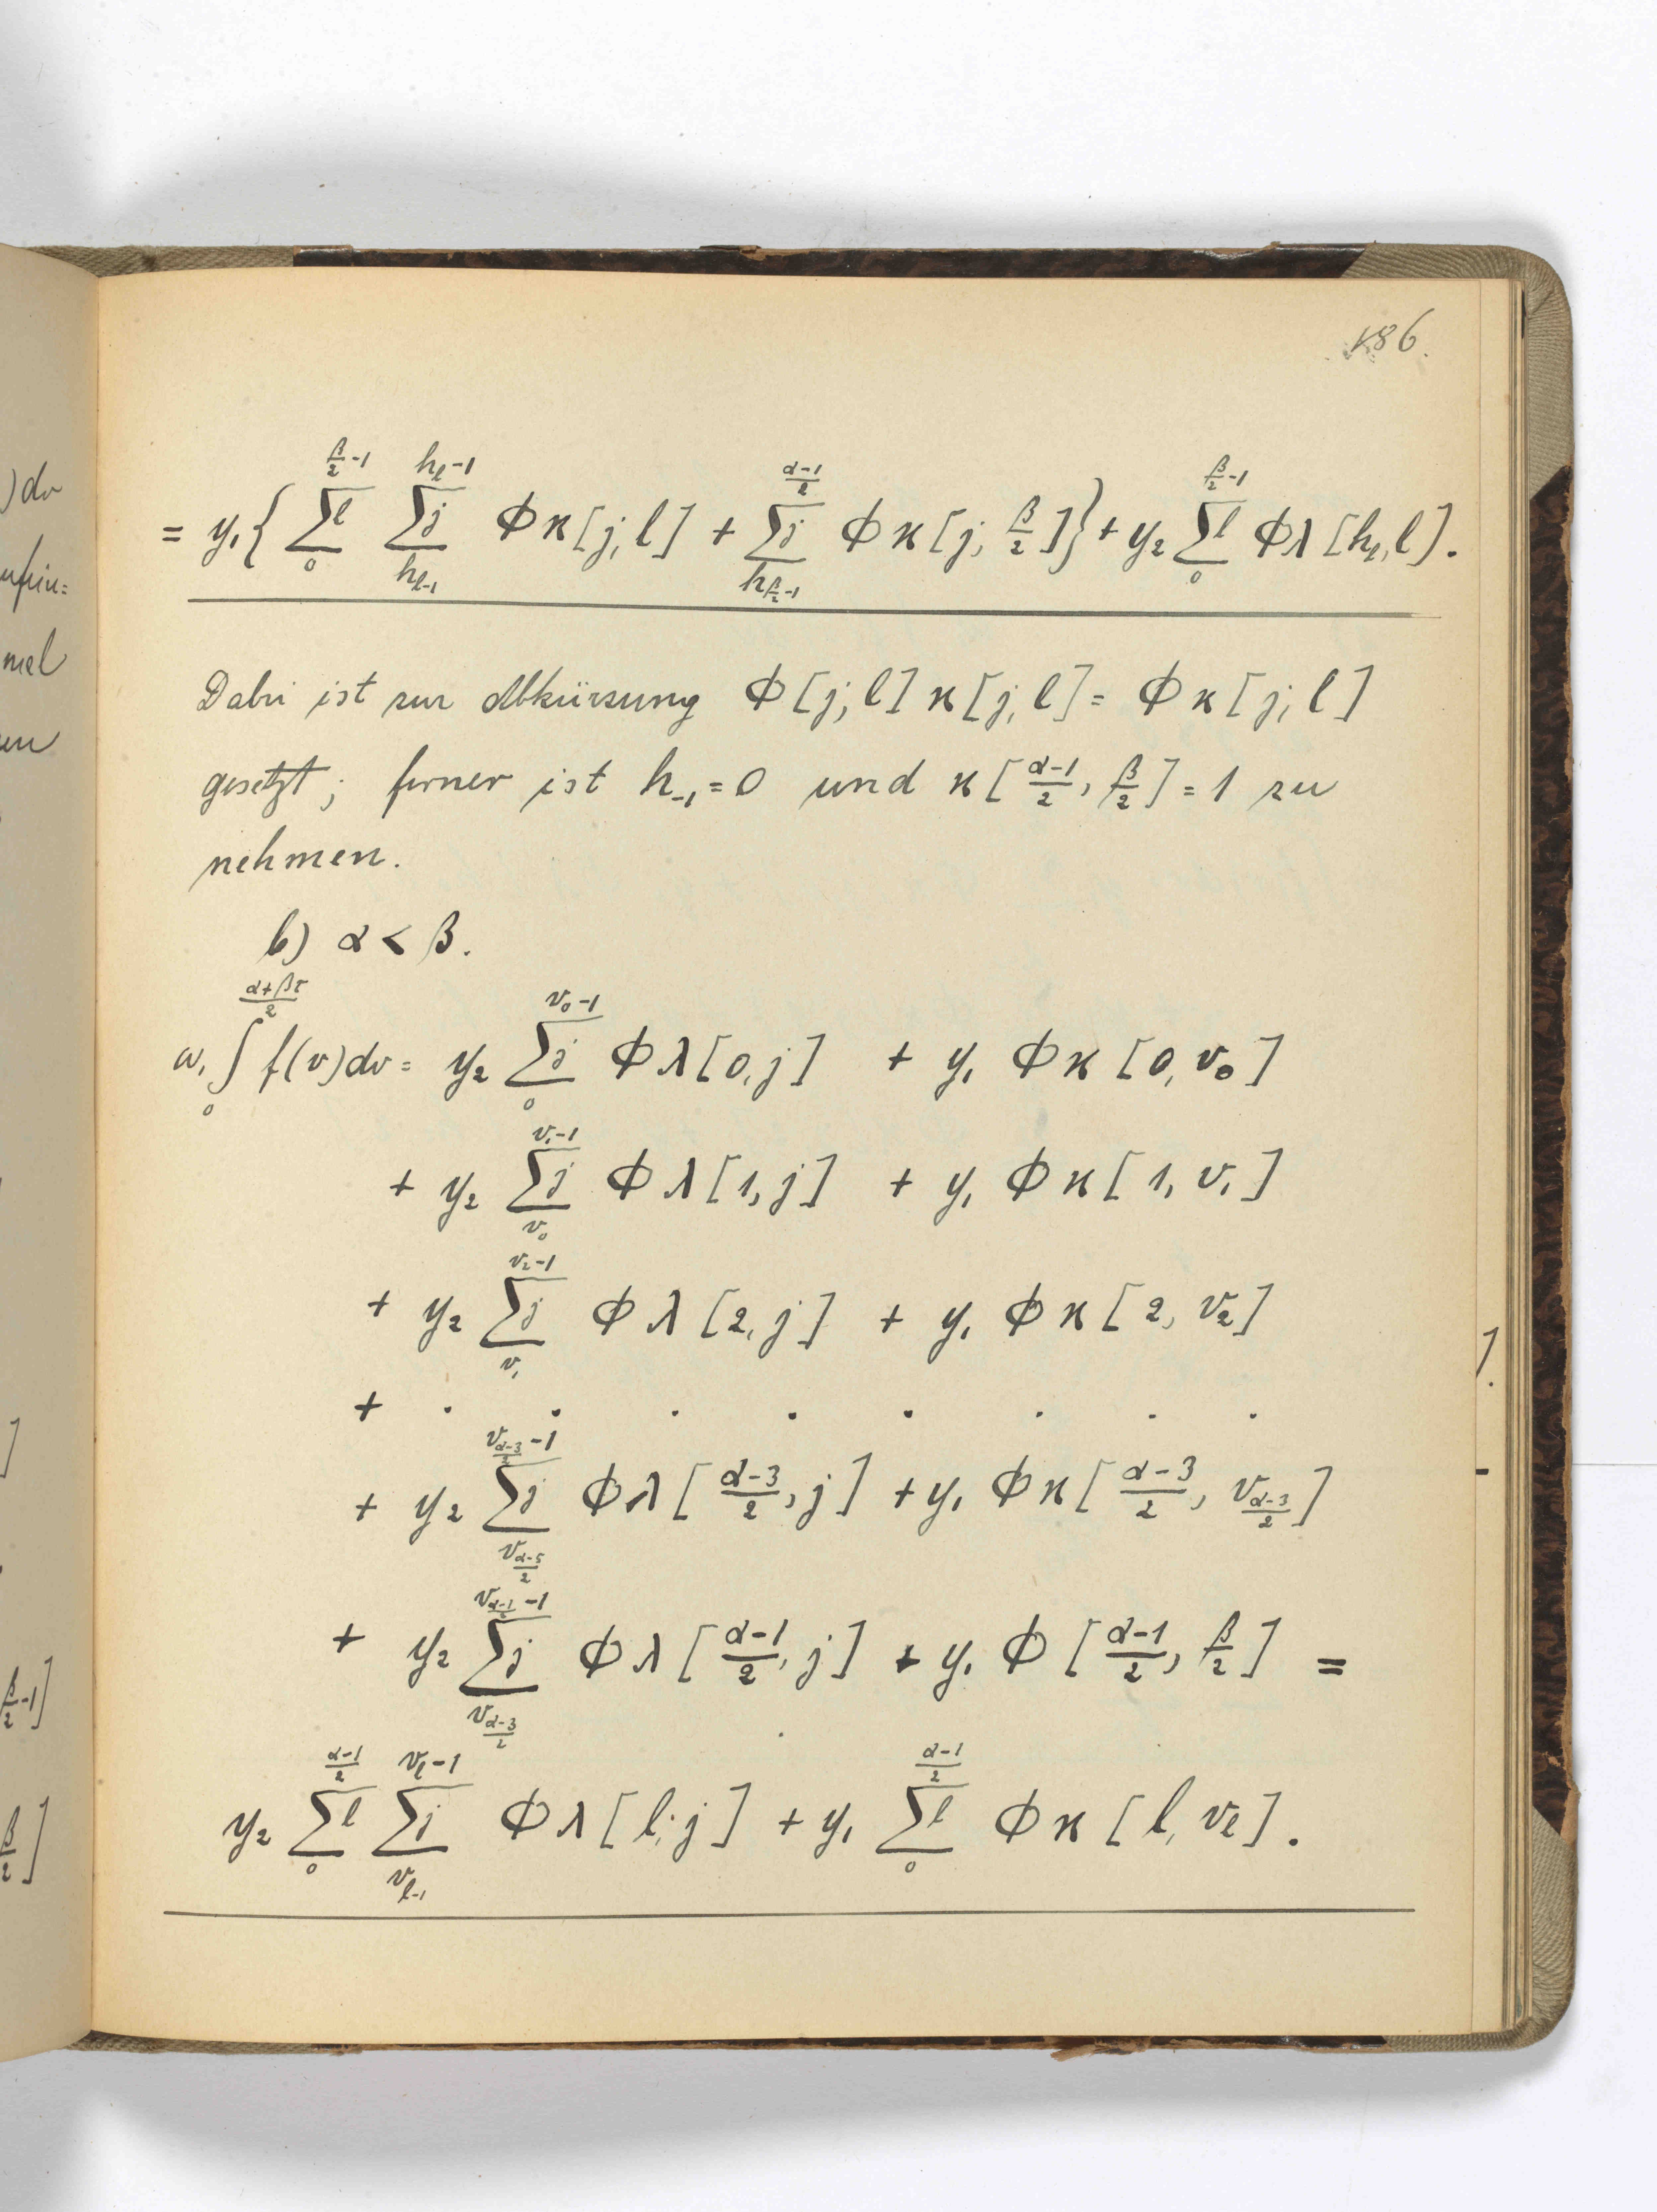 186.
= y₁{ \sum_{0}^{\frac{β}{2}-1}{}^{l} \sum_{h_{l-1}}^{h_l-1}{}^{j} Φκ[j, l] + \sum_{h_{\frac{β}{2}-1}}^{\frac{α-1}{2}}{}^{j} Φκ[j, \frac{β}{2}]} + y₂ \sum_{0}^{\frac{β}{2}-1}{}^{l} Φλ[h_l, l].
Dabei ist zur Abkürzung Φ[j, l] κ[j, l] = Φκ[j, l]
gesetzt; ferner ist h₋₁ = 0 und κ[\frac{α-1}{2}, \frac{β}{2}] = 1 zu
nehmen.
b) α < β.
ω₁ \int_{0}^{\frac{α+βτ}{2}} f(v)dv = y₂ \sum_{0}^{v_0-1}{}^{j} Φλ[0, j] + y₁ Φκ[0, v₀]
+ y₂ \sum_{v_0}^{v_1-1}{}^{j} Φλ[1, j] + y₁ Φκ[1, v₁]
+ y₂ \sum_{v_1}^{v_2-1}{}^{j} Φλ[2, j] + y₁ Φκ[2, v₂]
+ . . . . . . . .
+ y₂ \sum_{v_{\frac{α-5}{2}}}^{v_{\frac{α-3}{2}}-1}{}^{j} Φλ[\frac{α-3}{2}, j] + y₁ Φκ[\frac{α-3}{2}, v_{\frac{α-3}{2}}]
+ y₂ \sum_{v_{\frac{α-3}{2}}}^{v_{\frac{α-1}{2}}-1}{}^{j} Φλ[\frac{α-1}{2}, j] + y₁ Φ[\frac{α-1}{2}, \frac{β}{2}] =
y₂ \sum_{0}^{\frac{α-1}{2}}{}^{l} \sum_{v_{l-1}}^{v_l-1}{}^{j} Φλ[l, j] + y₁ \sum_{0}^{\frac{α-1}{2}}{}^{l} Φκ[l, v_l].